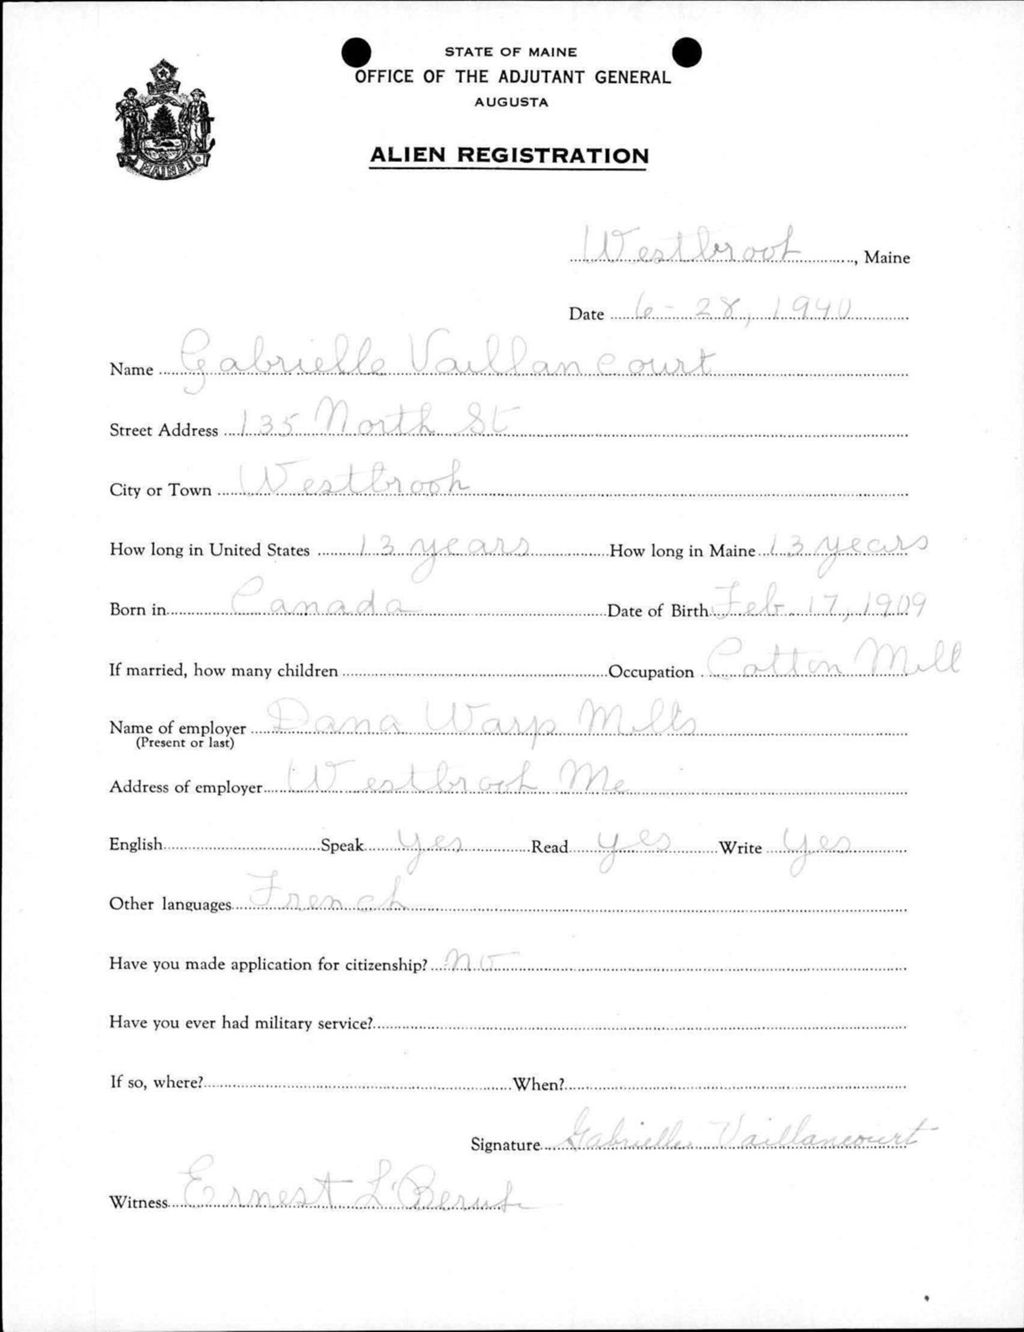 STATE OF MAINE
OFFICE OF THE ADJUTANT GENERAL
AUGUSTA
ALIEN REGISTRATION
MAINE
Westbrook, Maine
Date 6-28, 1940
Name Gabrielle Vaillancourt
Street Address 135 North St
City or Town Westbrook
How long in United States 13 years How long in Maine 13 years
Born in Canada Date of Birth Feb 17, 1909
If married, how many children Occupation Cotton Mill
Name of employer Dana Warp Mills
(Present or last)
Address of employer Westbrook Me
English Speak Yes Read yes Write Yes
Other languages French
Have you made application for citizenship? No
Have you ever had military service?
If so, where? When?
Signature Gabrielle Vaillancourt
Witness Ernest